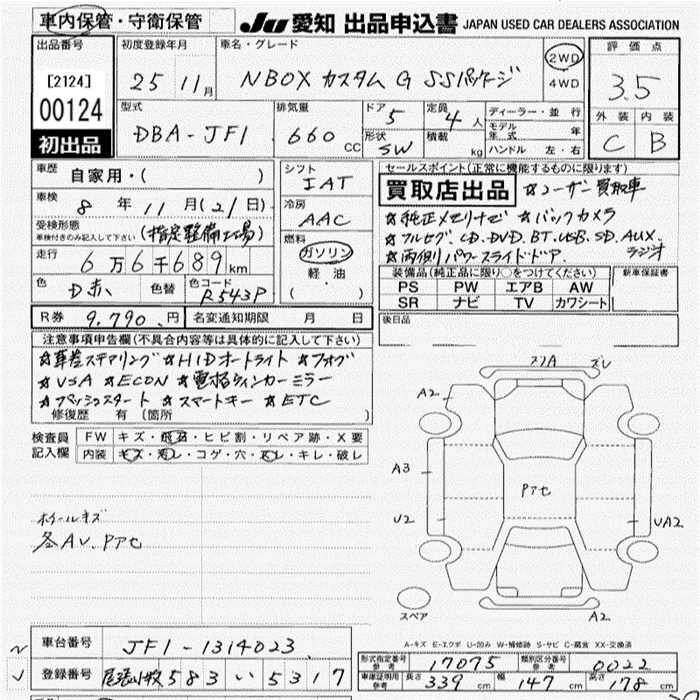 車内保管・守衛保管 JU 愛知 出品申込書 JAPAN USED CAR DEALERS ASSOCIATION
出品番号 初度登録年月 車名・グレード 評価点
[2124] 25 11月 NBOX カスタム G SSパッケージ 2WD 4WD 3.5
00124 型式 排気量 ドア 5 定員 4人 ディーラー・並行 外装 内装
初出品 DBA-JF1 660 CC 形状 SW 積載 kg モデル年式 年 C B
ハンドル 左・右
車歴 自家用・( ) シフト IAT セールスポイント(正常に機能するものに限ります)
車検 8年 11月(21日) 冷房 AAC 買取店出品 ☆ユーザー買取車
受検形態 車検付きのみ記入して下さい (指定整備工場) 燃料 ガソリン ☆純正メモリナビ ☆バックカメラ
走行 6万6千689km 軽油 ☆フルセグ.CD.DVD.BT.USB.SD.AUX.ラジオ
色 D赤 色替 色コード R543P ( ) ☆両側パワースライドドア.
装備品(純正品に限り○をつけてください) 新車保証書
PS PW エアB AW
SR ナビ TV カワシート
R券 9,790.円 名変通知期限 月 日 後日品
注意事項申告欄(不具合内容等は具体的に記入して下さい)
☆革巻ステアリング ☆HIDオートライト ☆フォグ
☆VSA ☆ECON ☆電格ウィンカーミラー
☆プッシュスタート ☆スマートキー ☆ETC
修復歴 有(箇所 )
検査員記入欄 FW キズ・飛石・ヒビ割・リペア跡・X要
内装 キズ・汚レ・コゲ・穴・スレ・キレ・破レ
ホイールキズ
各AU.Pアセ
スリA ズレ
A2
A3
Pアセ
U2 UA2
スペア A2
A-キズ E-エクボ U-凹み W-補修跡 S-サビ C-腐食 XX-交換済
車台番号 JF1-1314023
登録番号 尾張小牧 583 い 5317
型式指定番号 参考 17075 類別区分番号 参考 0022
車庫証明用 参考 長さ 339 cm 幅 147 cm 高さ 178 cm